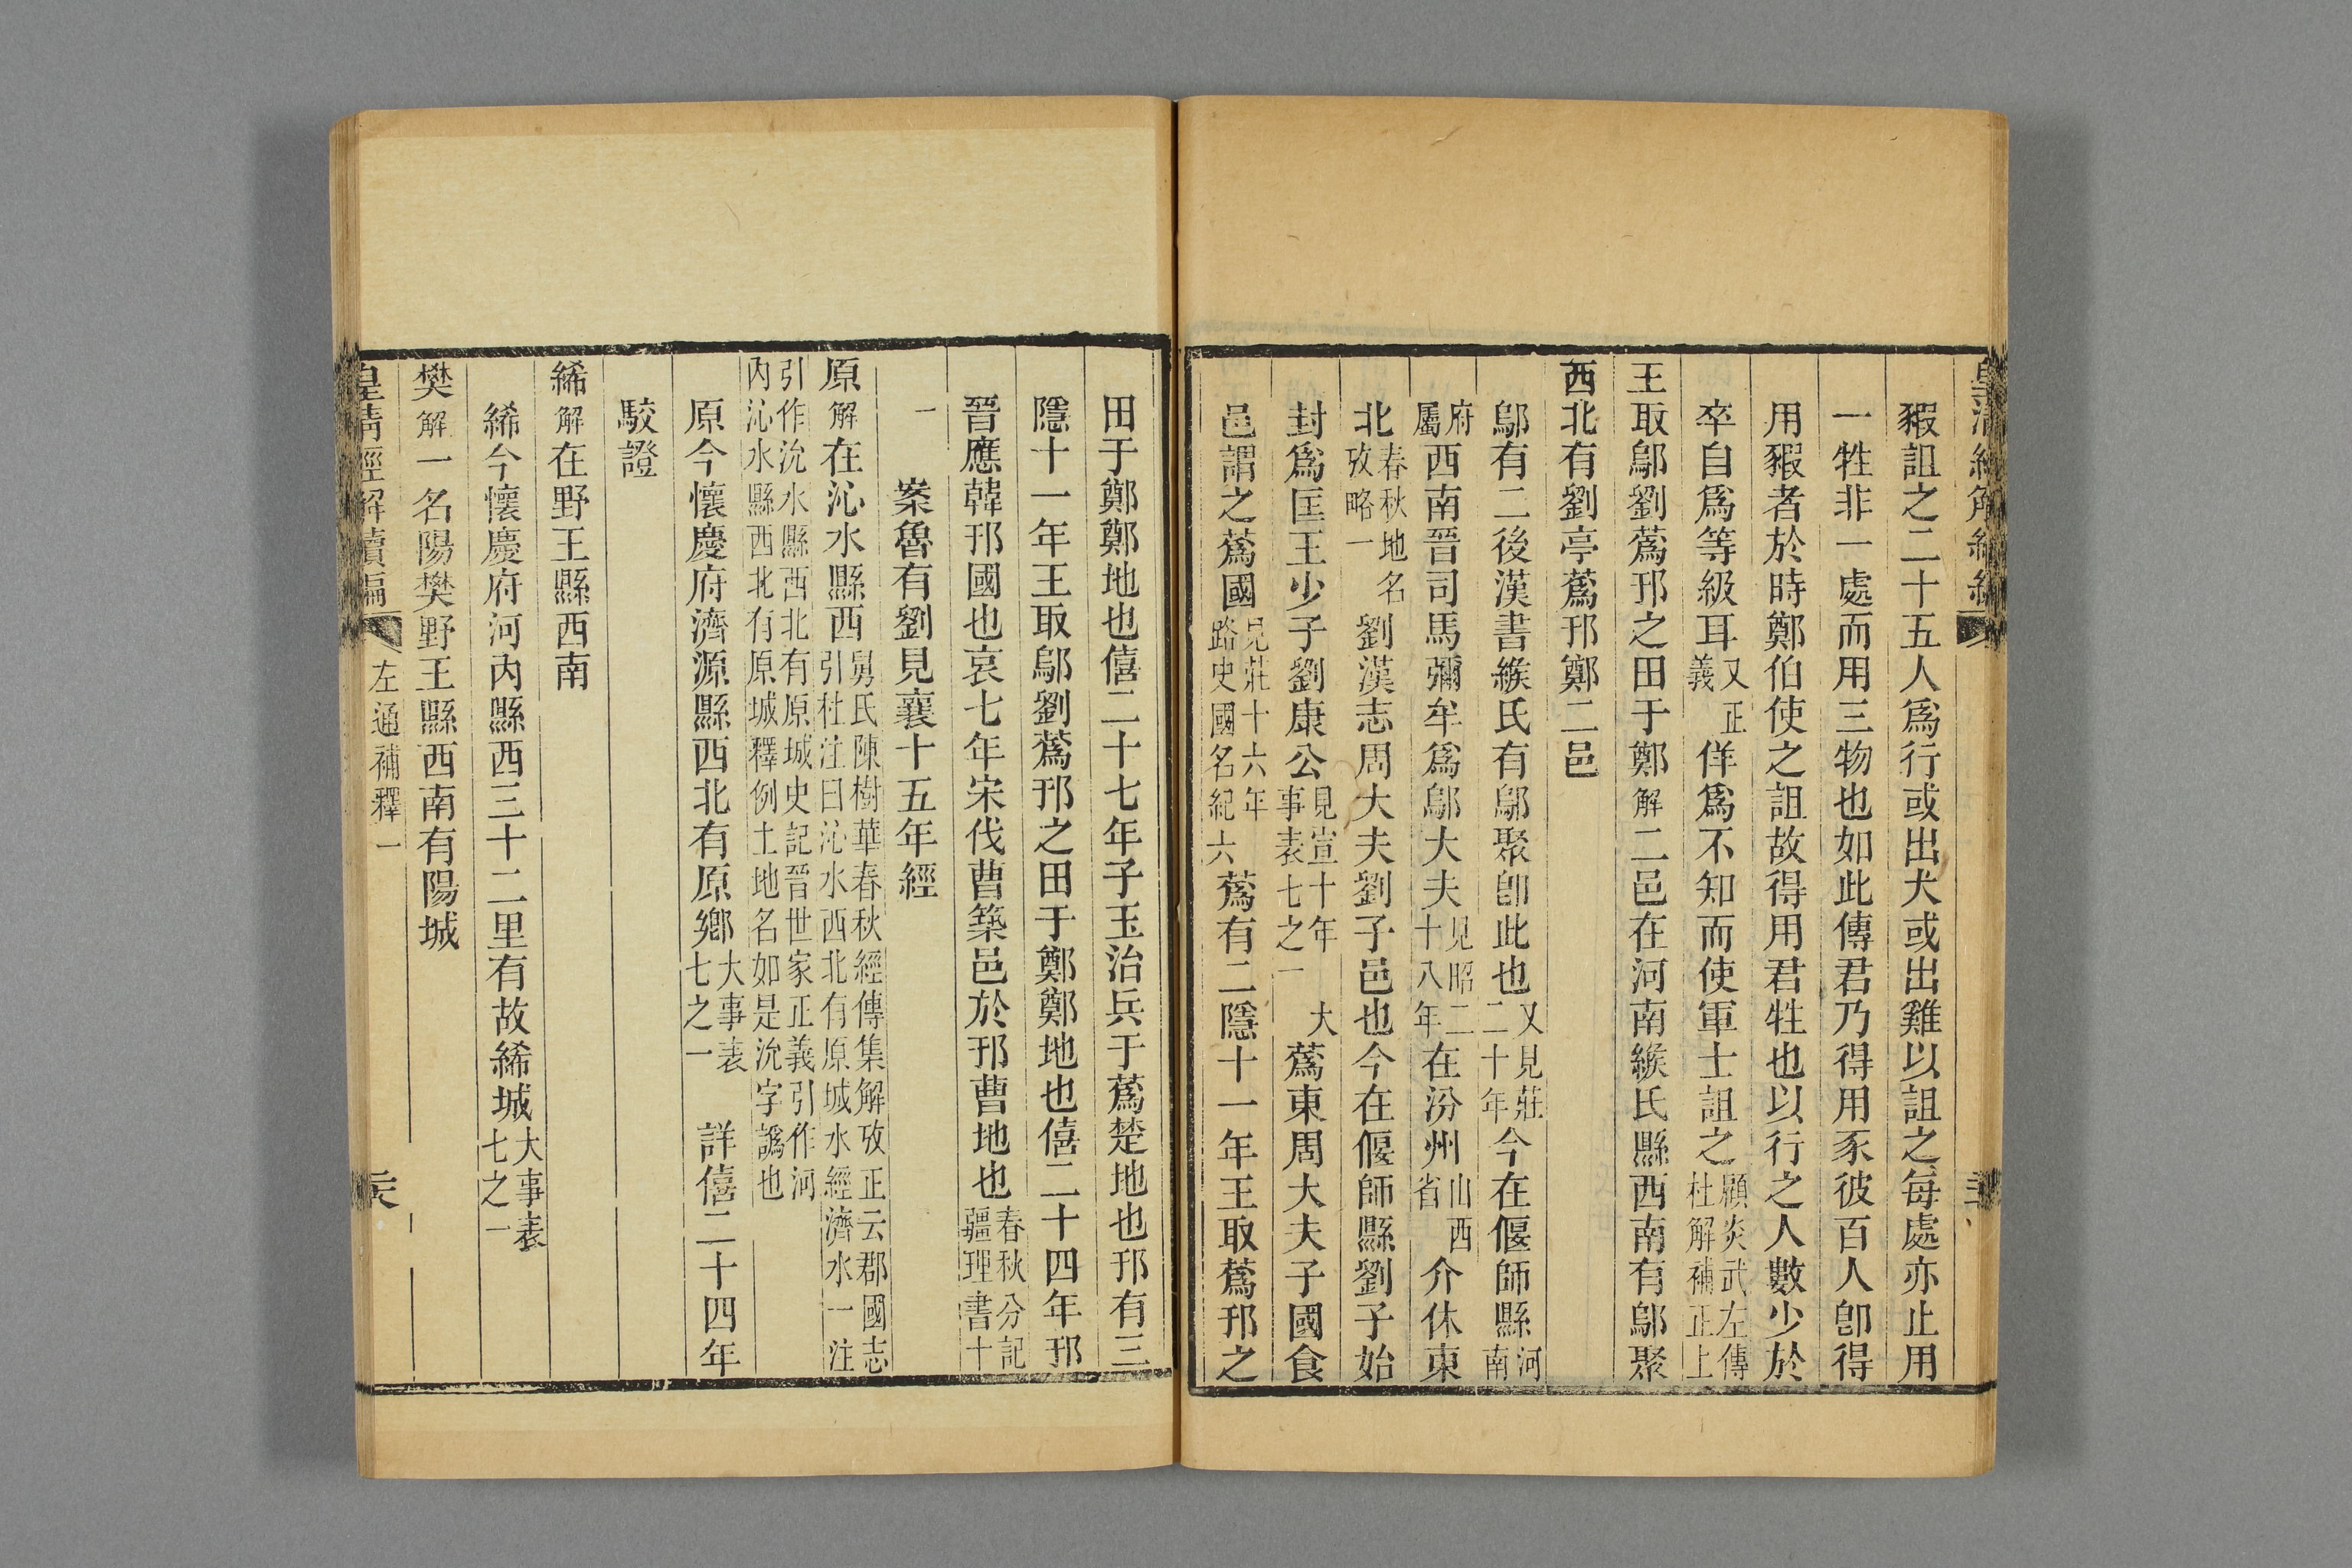 豭詛之二十五人爲行或出犬或出雞以詛之每處亦止用
一牲非一處而用三物也如此傳君乃得用豕彼百人卽得
用豭者於時鄭伯使之詛故得用君牲也以行之人數少於
卒自爲等級耳又正義佯爲不知而使軍士詛之顧炎武左傳杜解補正上
王取鄔劉蔿邘之田于鄭解二邑在河南緱氏縣西南有鄔聚
西北有劉亭蔿邘鄭二邑
鄔有二後漢書緱氏有鄔聚卽此也又見莊二十年今在偃師縣河南
府屬西南晉司馬彌牟爲鄔大夫見昭二十八年在汾州山西省介休東
北春秋地名攷略一劉漢志周大夫劉子邑也今在偃師縣劉子始
封爲匡王少子劉康公見宣十年大事表七之一蔿東周大夫子國食
邑謂之蔿國見莊十六年路史國名紀六蔿有二隱十一年王取蔿邘之
田于鄭鄭地也僖二十七年子玉治兵于蔿楚地也邘有三
隱十一年王取鄔劉蔿邘之田于鄭鄭地也僖二十四年邘
晉應韓邘國也哀七年宋伐曹築邑於邘曹地也春秋分記疆理書十
一　案魯有劉見襄十五年經
原解在沁水縣西舅氏陳樹華春秋經傳集解攷正云郡國志引杜注曰沁水西北有原城水經濟水一注
引作沇水縣西北有原城史記晉世家正義引作河內沁水縣西北有原城釋例土地名如是沇字譌也
原今懷慶府濟源縣西北有原鄉大事表七之一　詳僖二十四年
駮證
絺解在野王縣西南
絺今懷慶府河內縣西三十二里有故絺城大事表七之一
樊解一名陽樊野王縣西南有陽城
皇清經解續編　左通補釋一